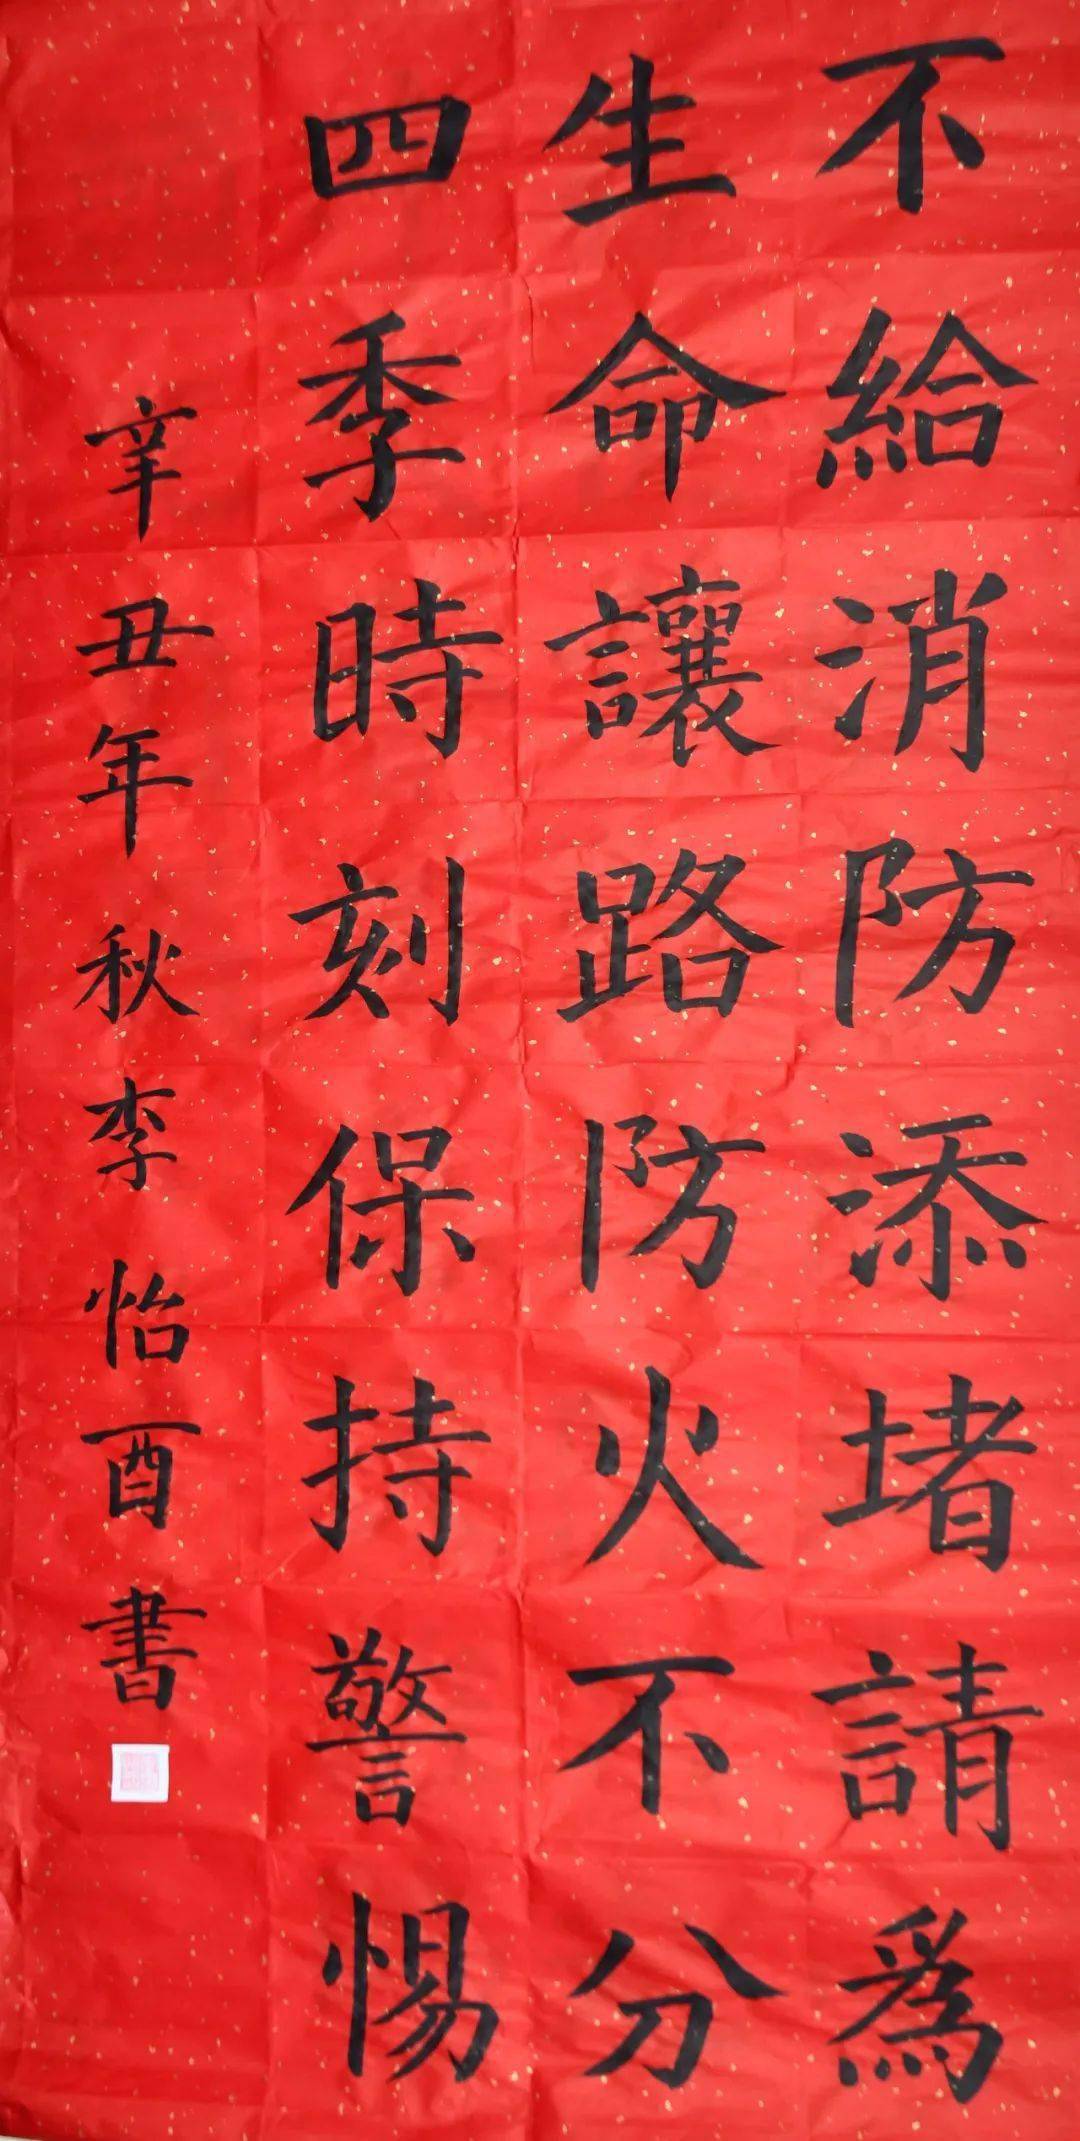 不給消防添堵請為
生命讓路防火不分
四季時刻保持警惕
辛丑年秋李怡酉書